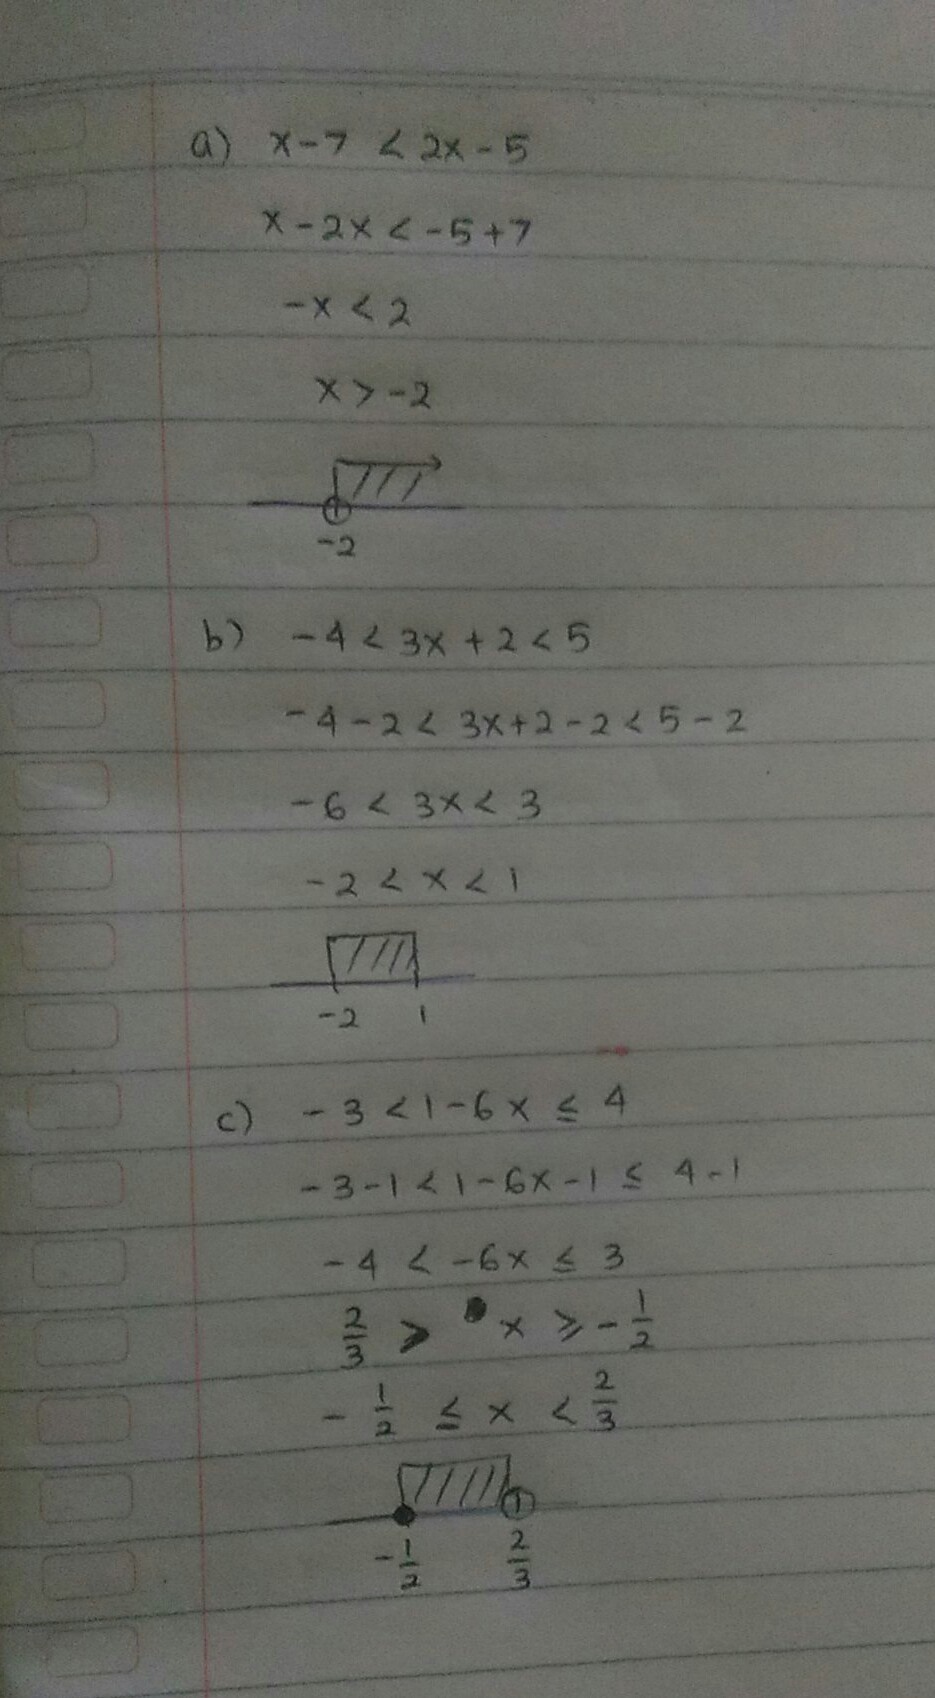 a) x-7 < 2x-5
x-2x < -5+7
-x < 2
x > -2
-2
b) -4 < 3x+2 < 5
-4-2 < 3x+2-2 < 5-2
-6 < 3x < 3
-2 < x < 1
-2 1
c) -3 < 1-6x ≤ 4
-3-1 < 1-6x-1 ≤ 4-1
-4 < -6x ≤ 3
2/3 > x ≥ -1/2
-1/2 ≤ x < 2/3
-1/2 2/3